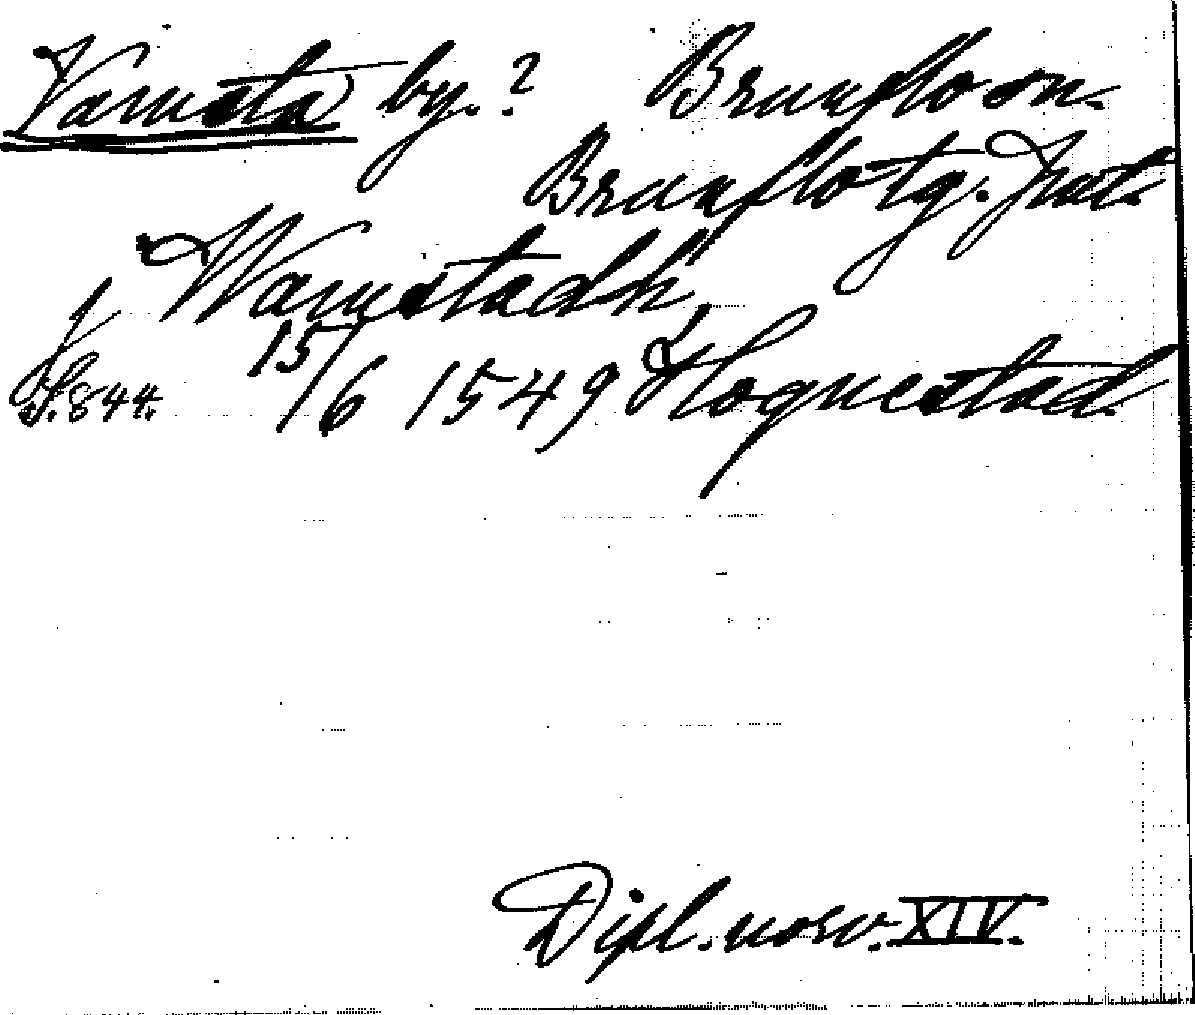 Vamsta by.? Brunflo sn.
Brunflo tg. Jmtl.
Wamstadh
i
S. 844. 15/6 1549 Hognestad.
Dipl. norv. XIV.